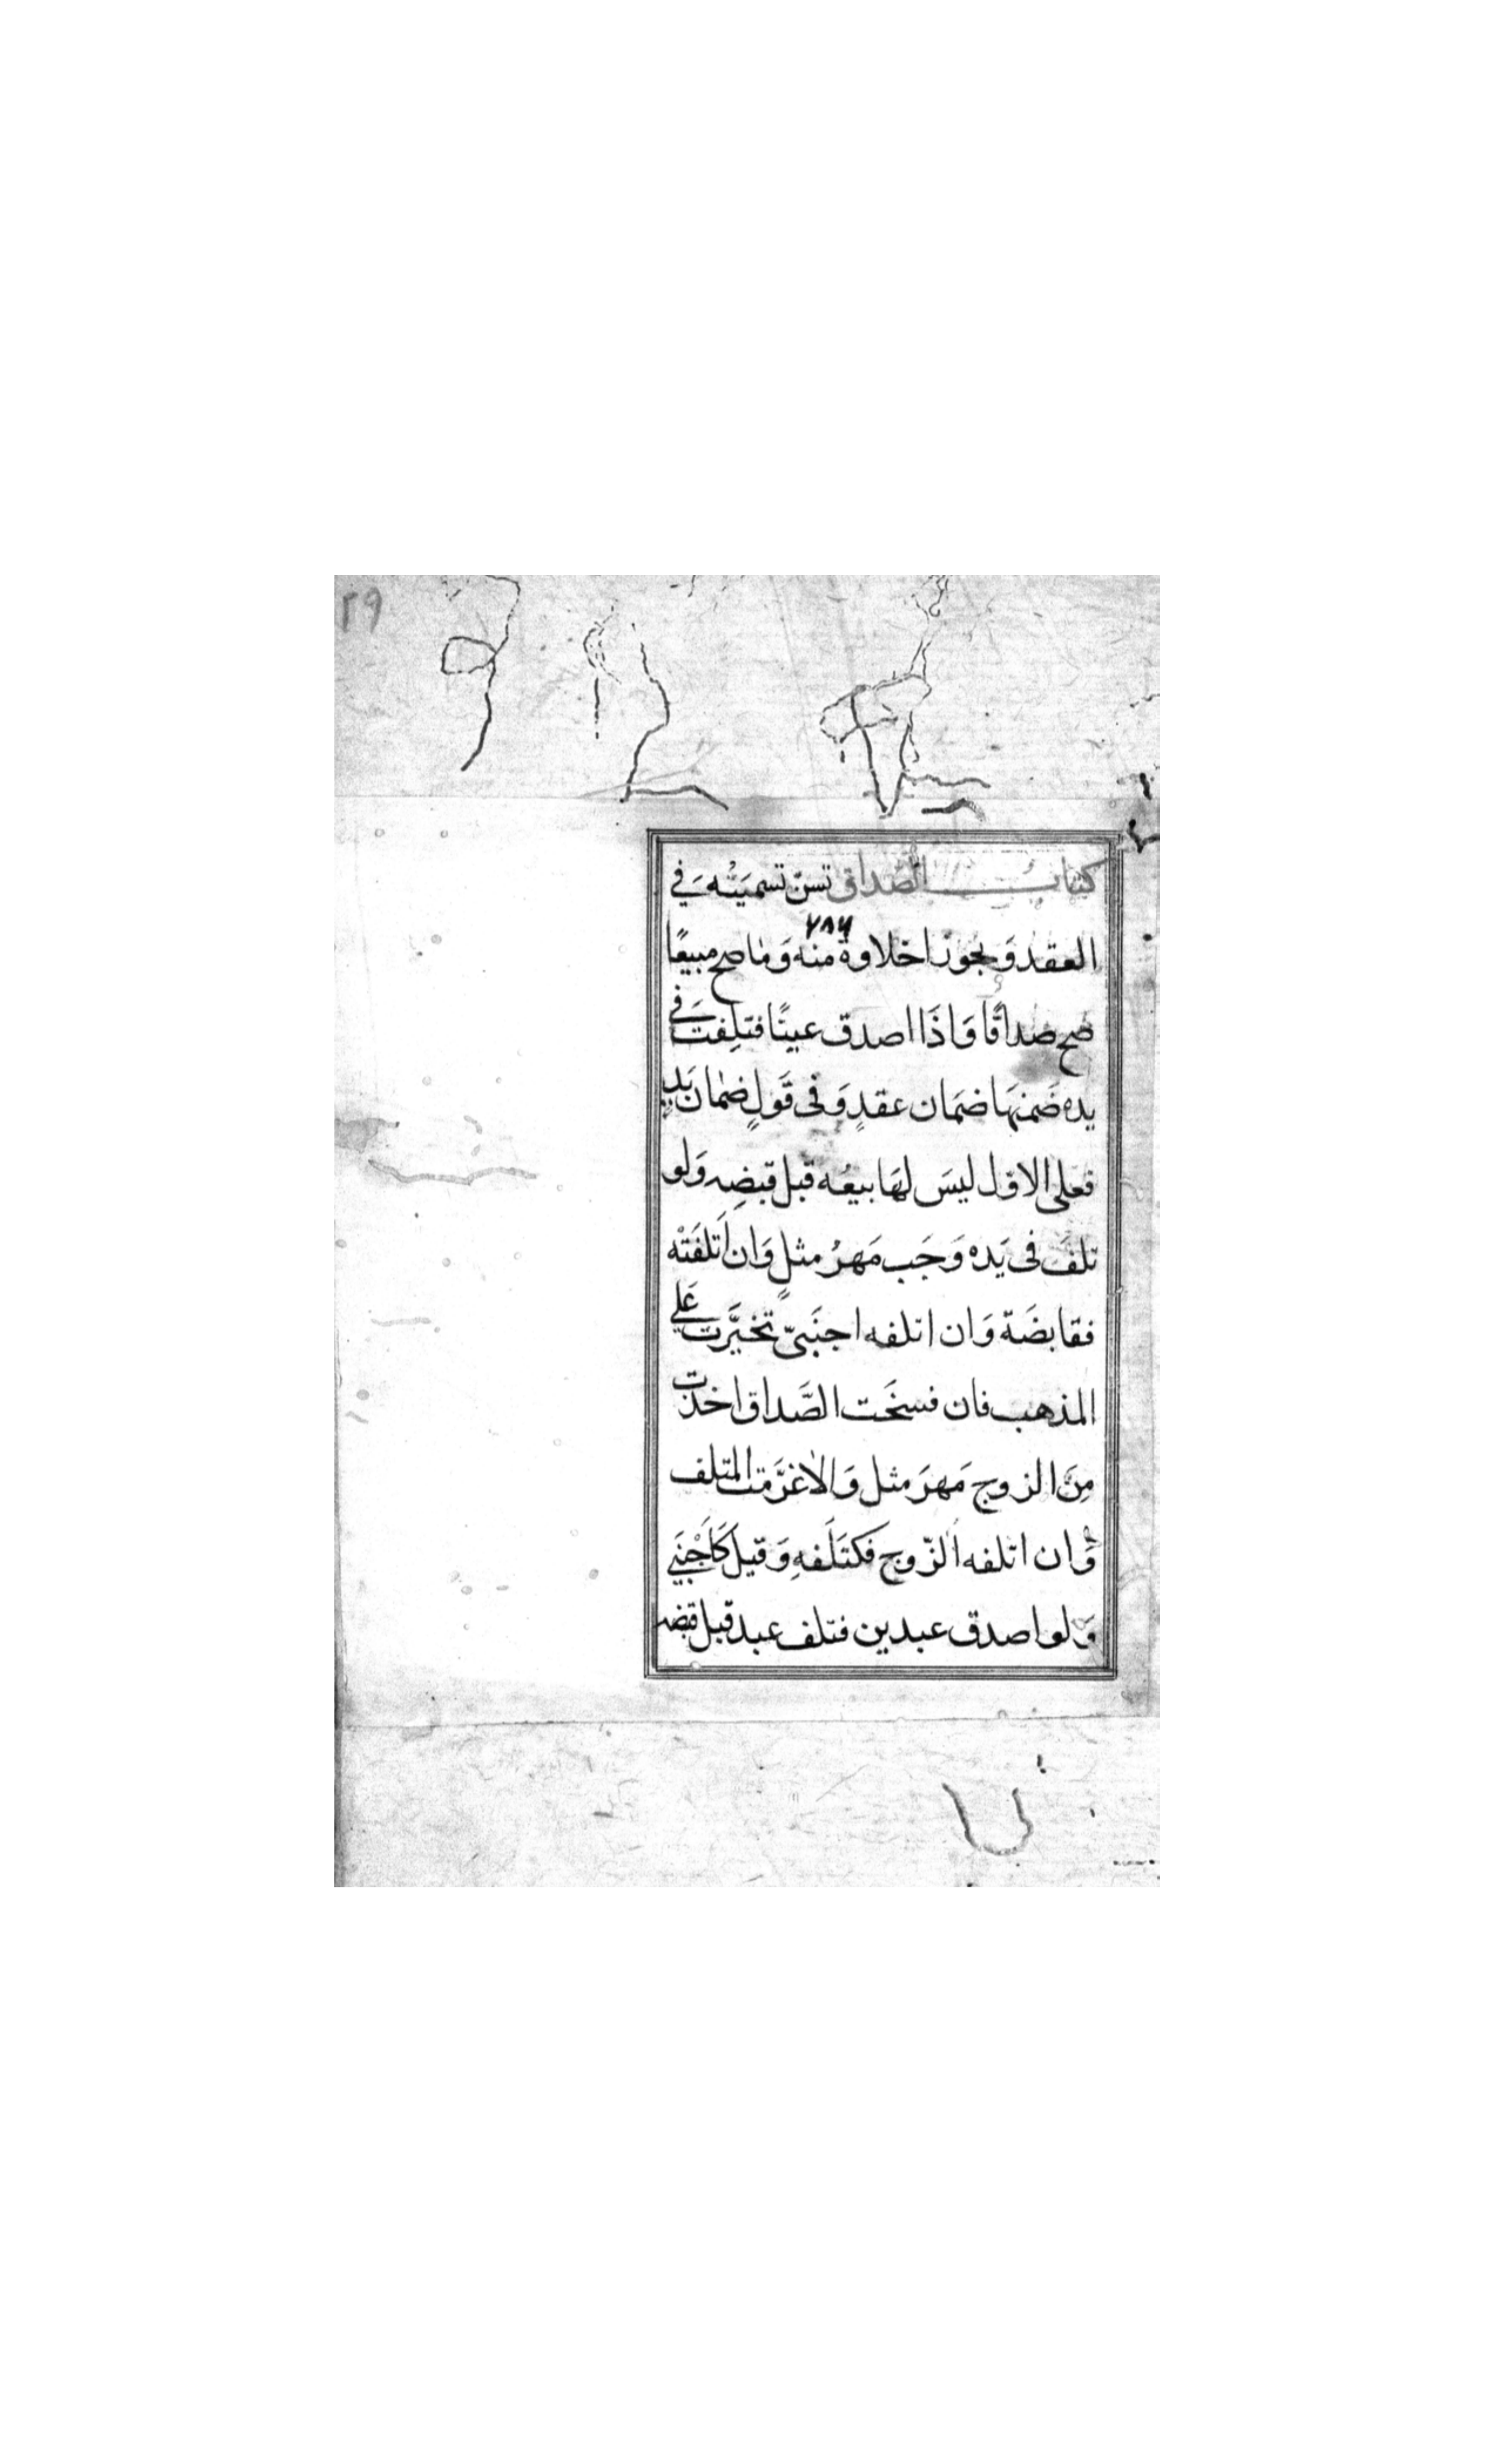 ٢٩
كتاب الصداق تسنّ تسميَتُه فَي
٧٨٦
العقد وَيجوز اخلاوهُ منه وَمٰا صح مبيعًا
صح صداقًا وَاذَا اصدق عينًا فتلِفت فَي
يده ضَمنهَا ضمَان عقدٍ وَفى قَولٍ ضمٰان يَدٍ
فعَلى الاوّل ليسَ لهَا بيعُه قبل قبضِه وَلو
تلفَ فى يَده وَجَب مَهرُ مثلٍ وَان اَتلفَتْه
فقابضَة وَان اتلفه اجنَبىّ تخيَّرت عَلي
المذهب فان فسخَت الصَّداق اخذت
مِنَ الزوج مَهرَ مثل وَالاٰ غرَّمَت المتلف
وَان اتلفه الزّوج فكتَلَفهِ وَقيل كَاَجْنَبي
وَلو اصدق عبدين فتلف عبد قبل قبضه